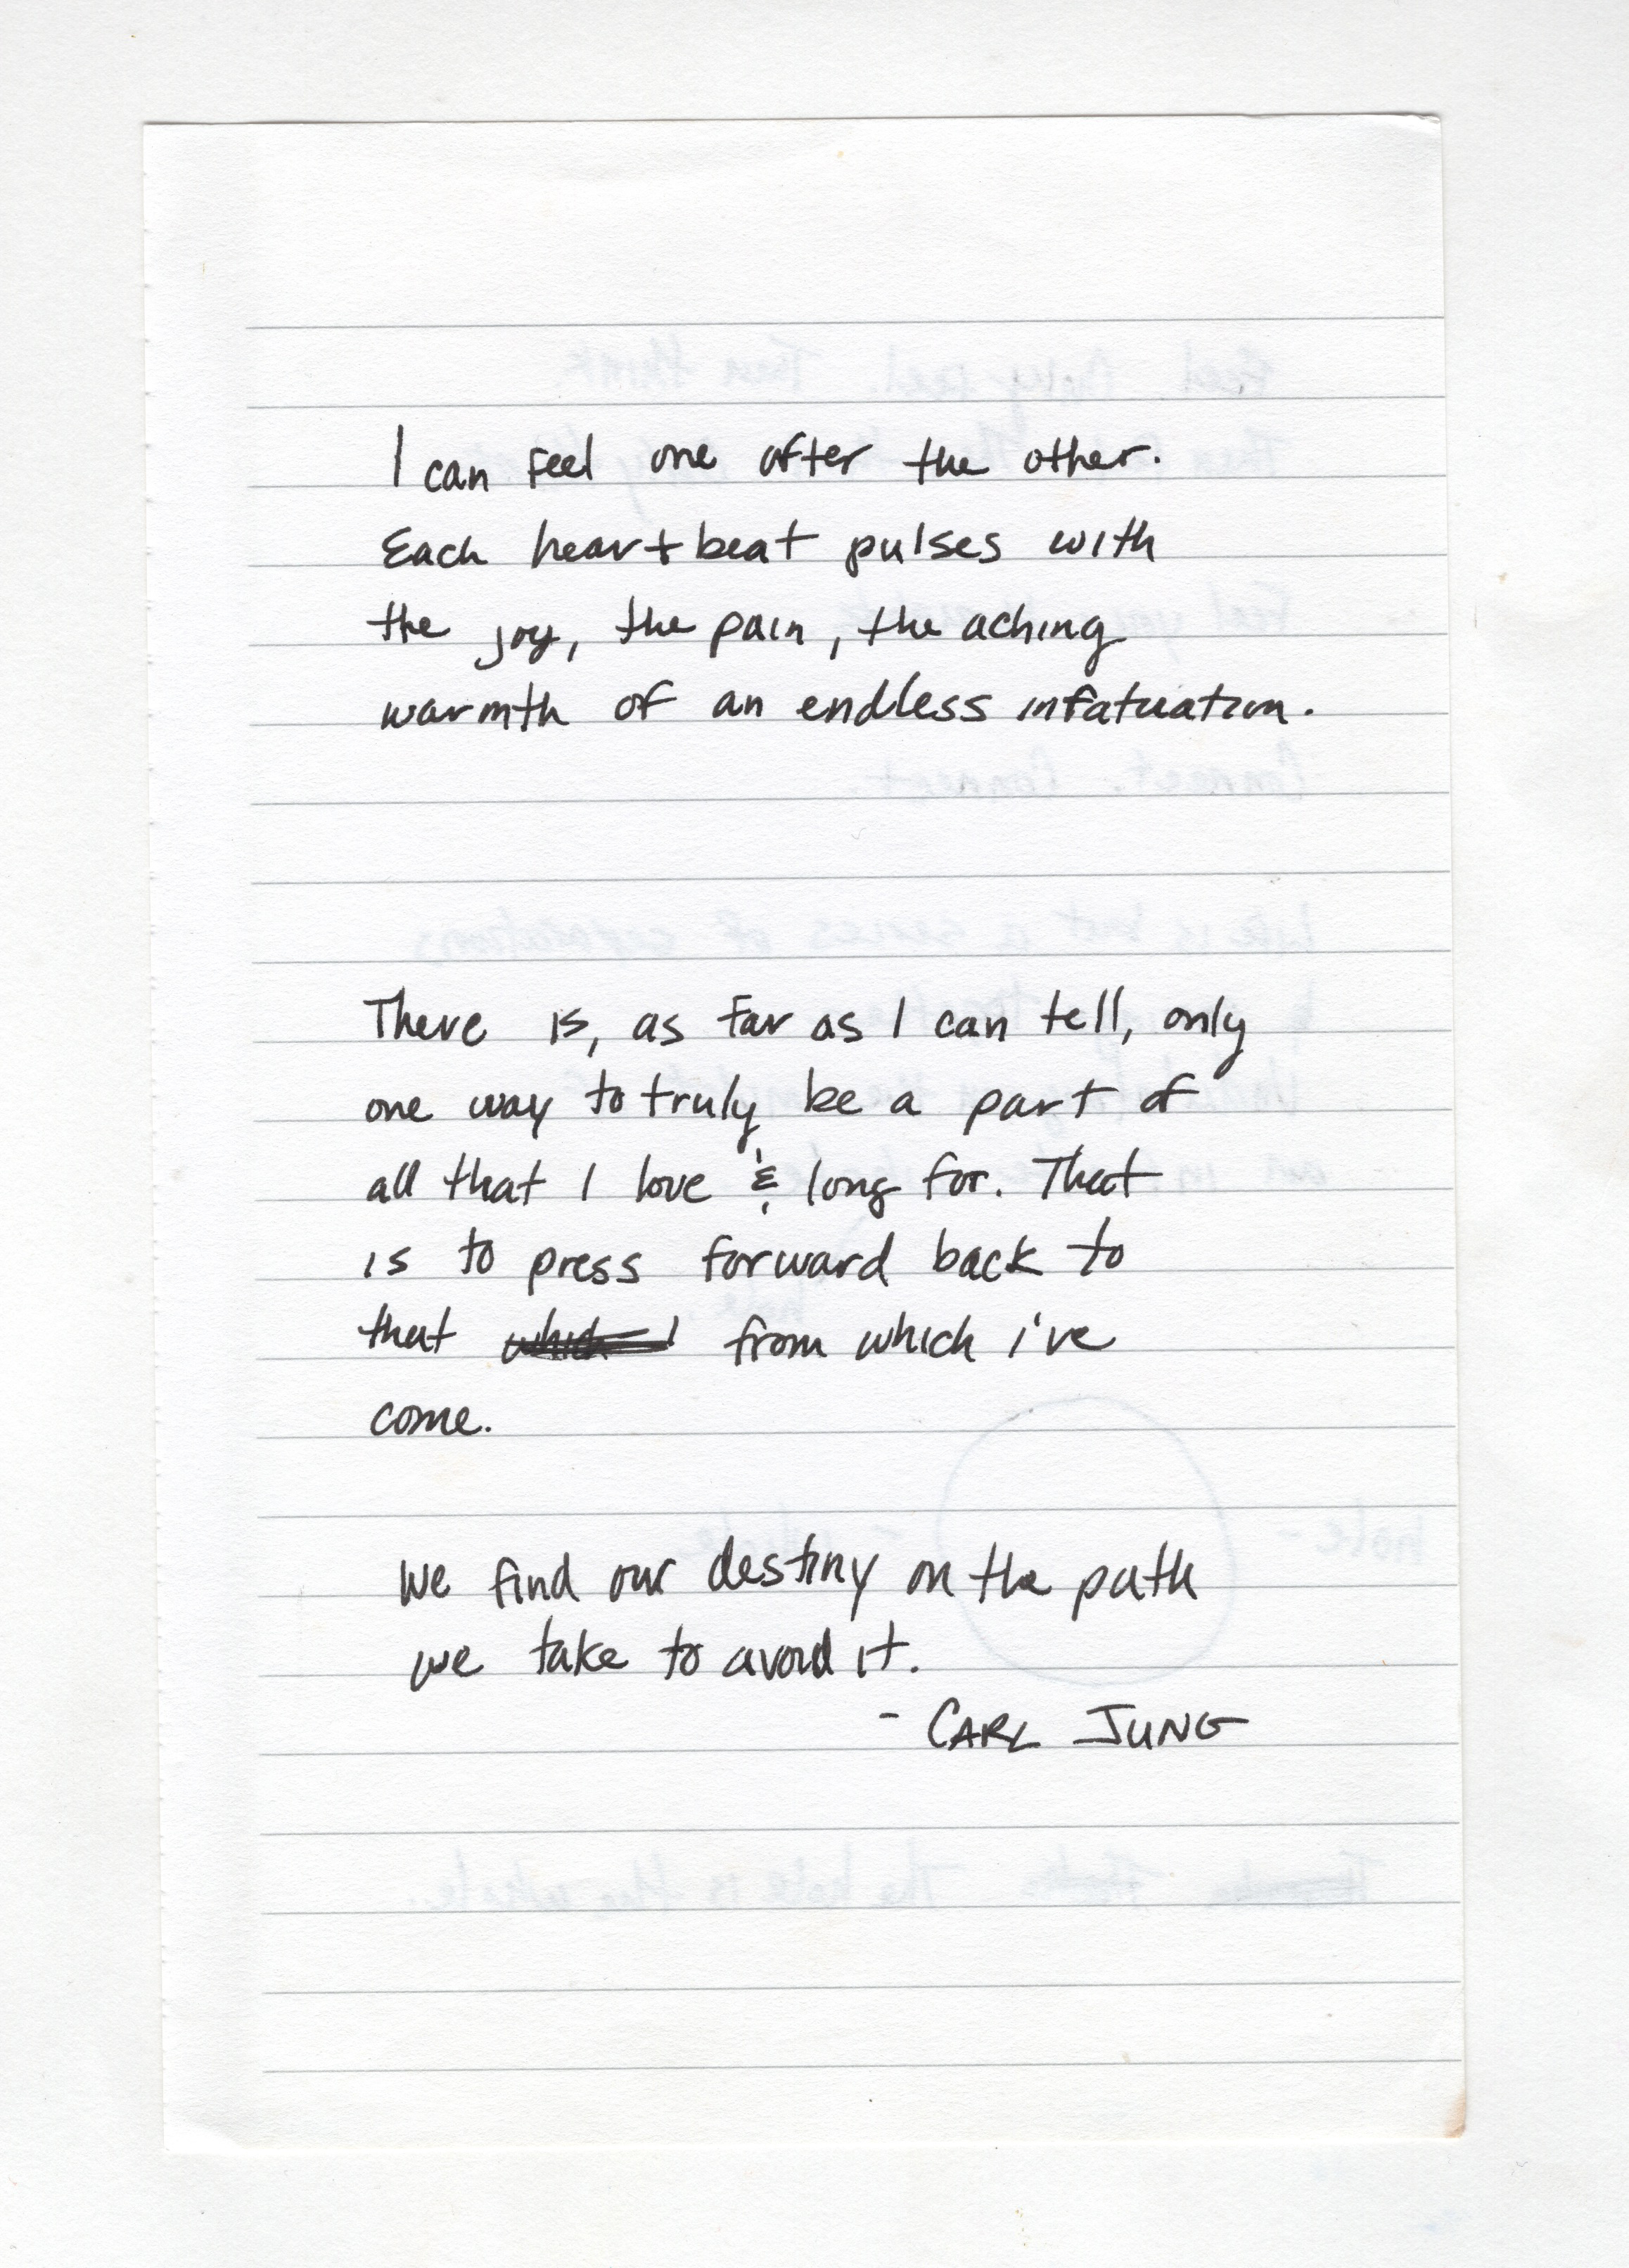 I can feel one after the other.
Each heartbeat pulses with
the joy, the pain, the aching
warmth of an endless infatuation.
There is, as far as I can tell, only
one way to truly be a part of
all that I love & long for. That
is to press forward back to
that which I from which i've
come.
We find our destiny on the path
we take to avoid it.
- CARL JUNG